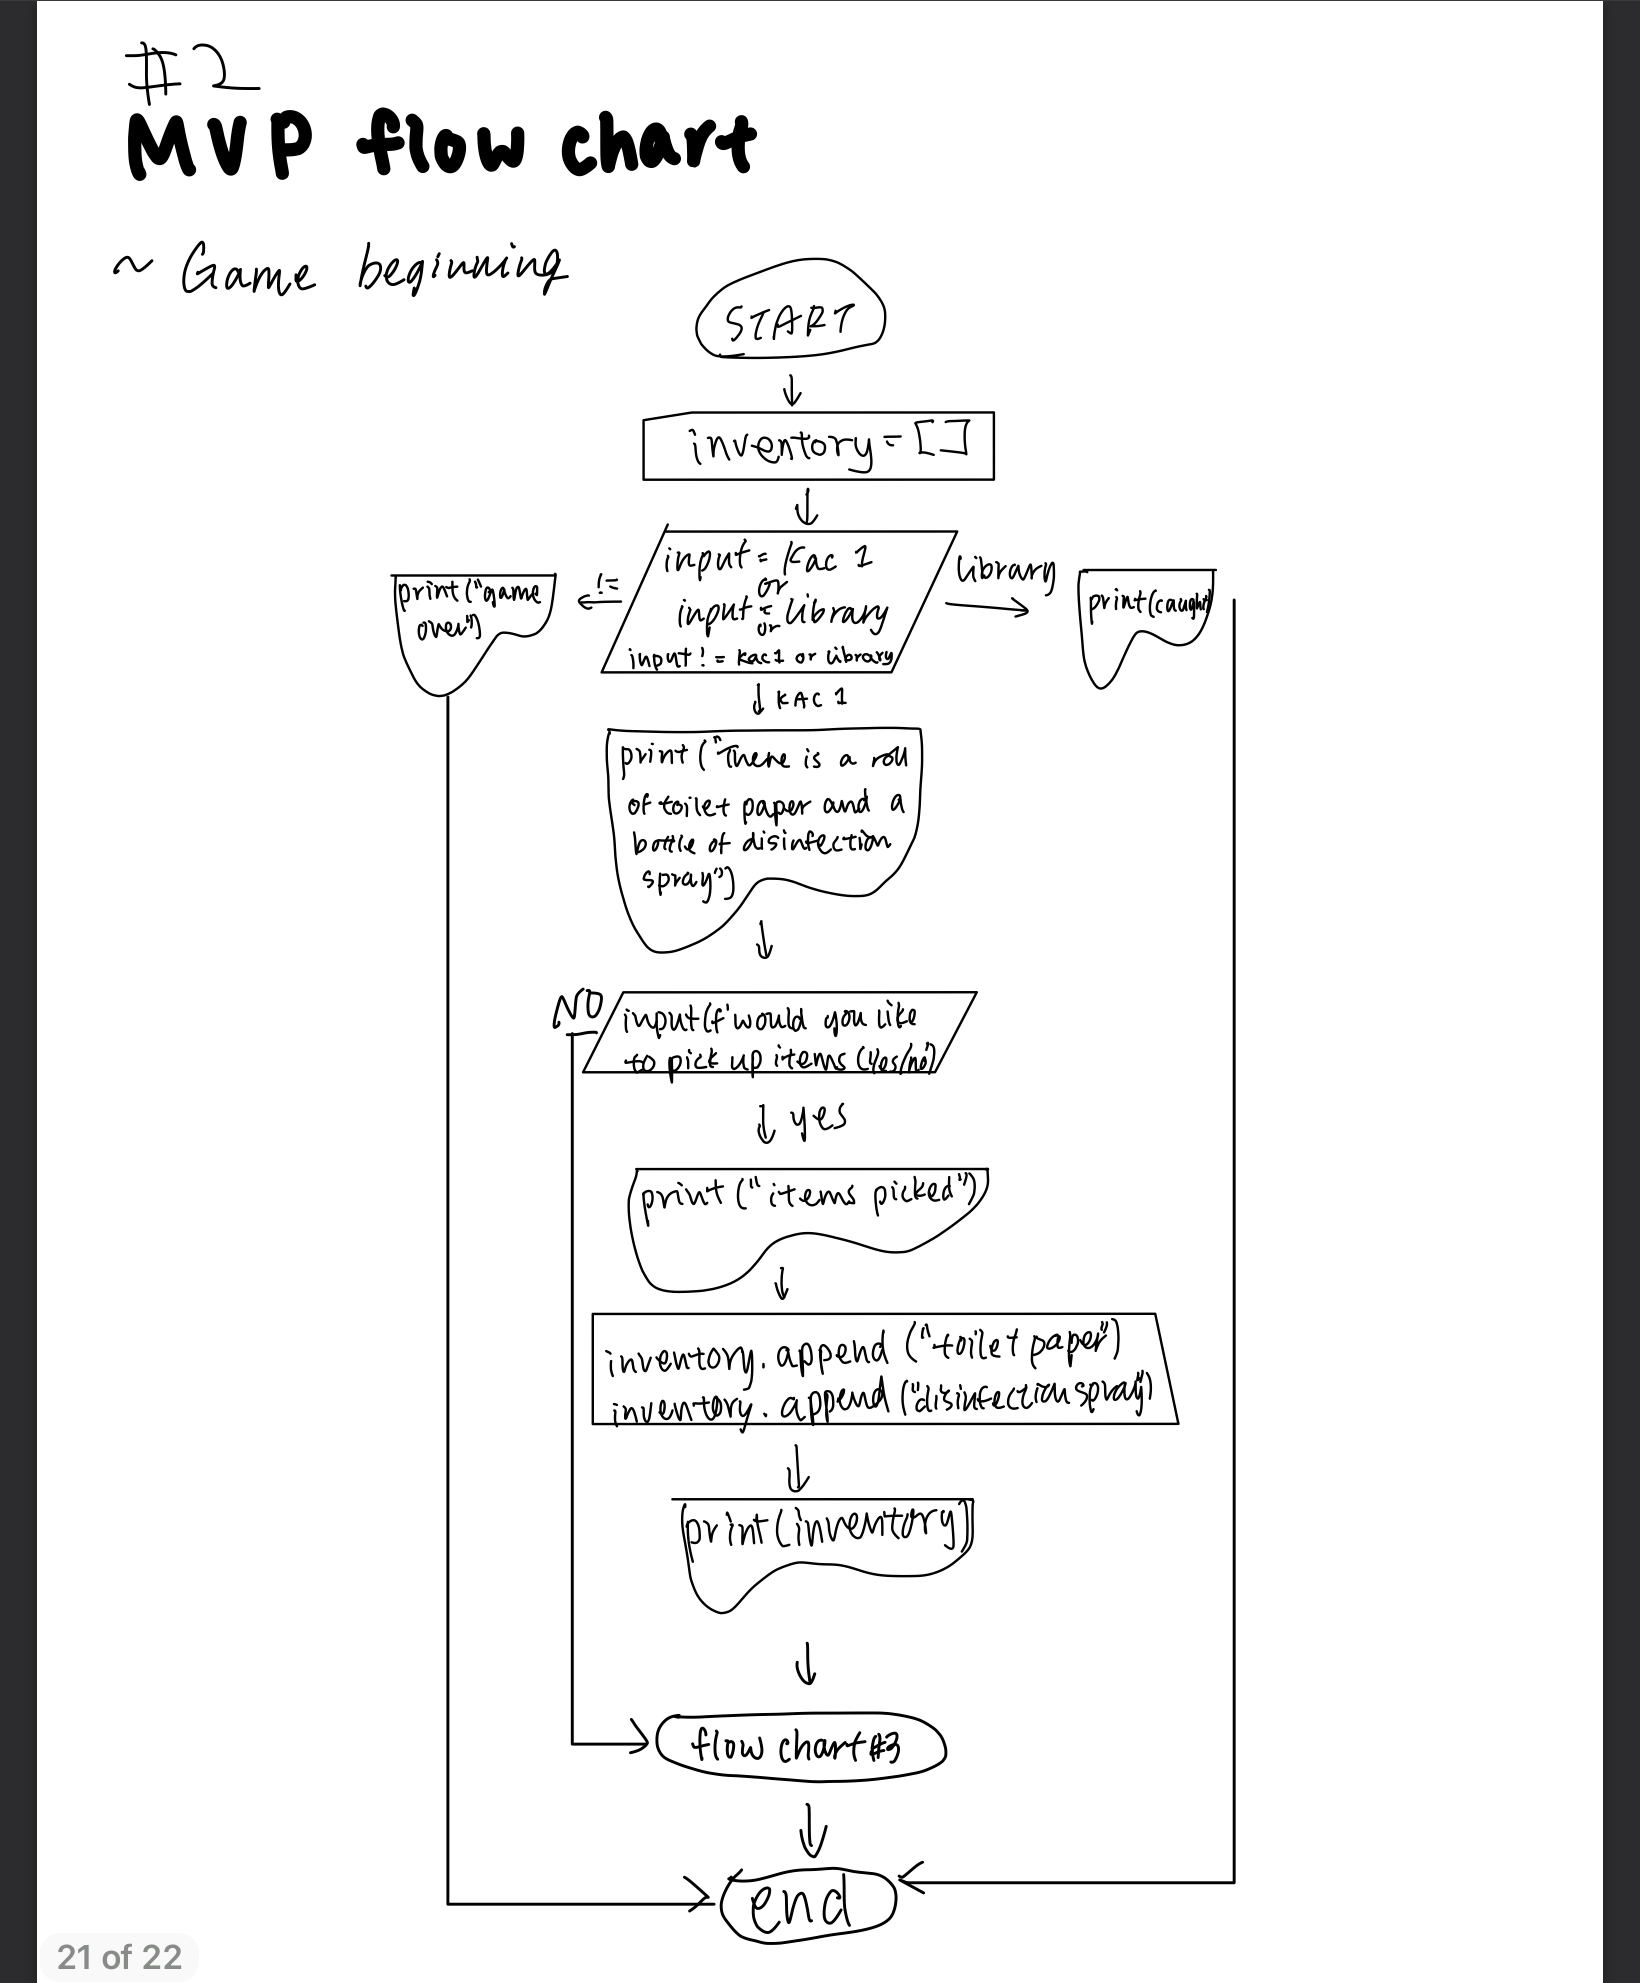 #2
MVP flow chart
~ Game beginning
START
inventory = []
input = Kac 1
or
input = library
or
input != kac1 or library
!=
print("game
over")
library
print(caught)
KAC 1
print("There is a roll
of toilet paper and a
bottle of disinfection
spray")
NO
input(f'would you like
to pick up items (Yes/no')
yes
print("items picked")
inventory.append("toilet paper")
inventory.append("disinfection spray")
print(inventory)
flow chart #3
end
21 of 22